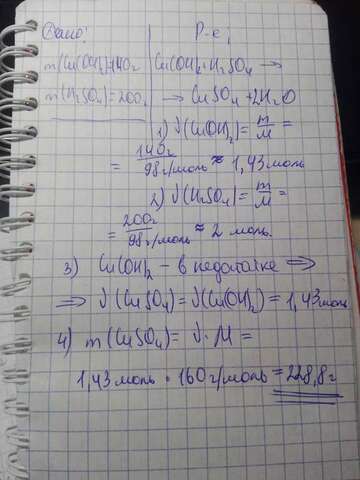 Дано:
m(Cu(OH)₂)=140г
m(H₂SO₄)=200г
Р-е:
Cu(OH)₂+H₂SO₄ →
→ CuSO₄+2H₂O
1) ν(Cu(OH)₂)= m/M =
= 140г/98г/моль ≈ 1,43моль
2) ν(H₂SO₄)= m/M =
= 200г/98г/моль ≈ 2 моль.
3) Cu(OH)₂ – в недостатке ⇒
⇒ ν(CuSO₄)=ν(Cu(OH)₂)=1,43моль
4) m(CuSO₄)= ν·M =
1,43моль · 160г/моль =228,8г